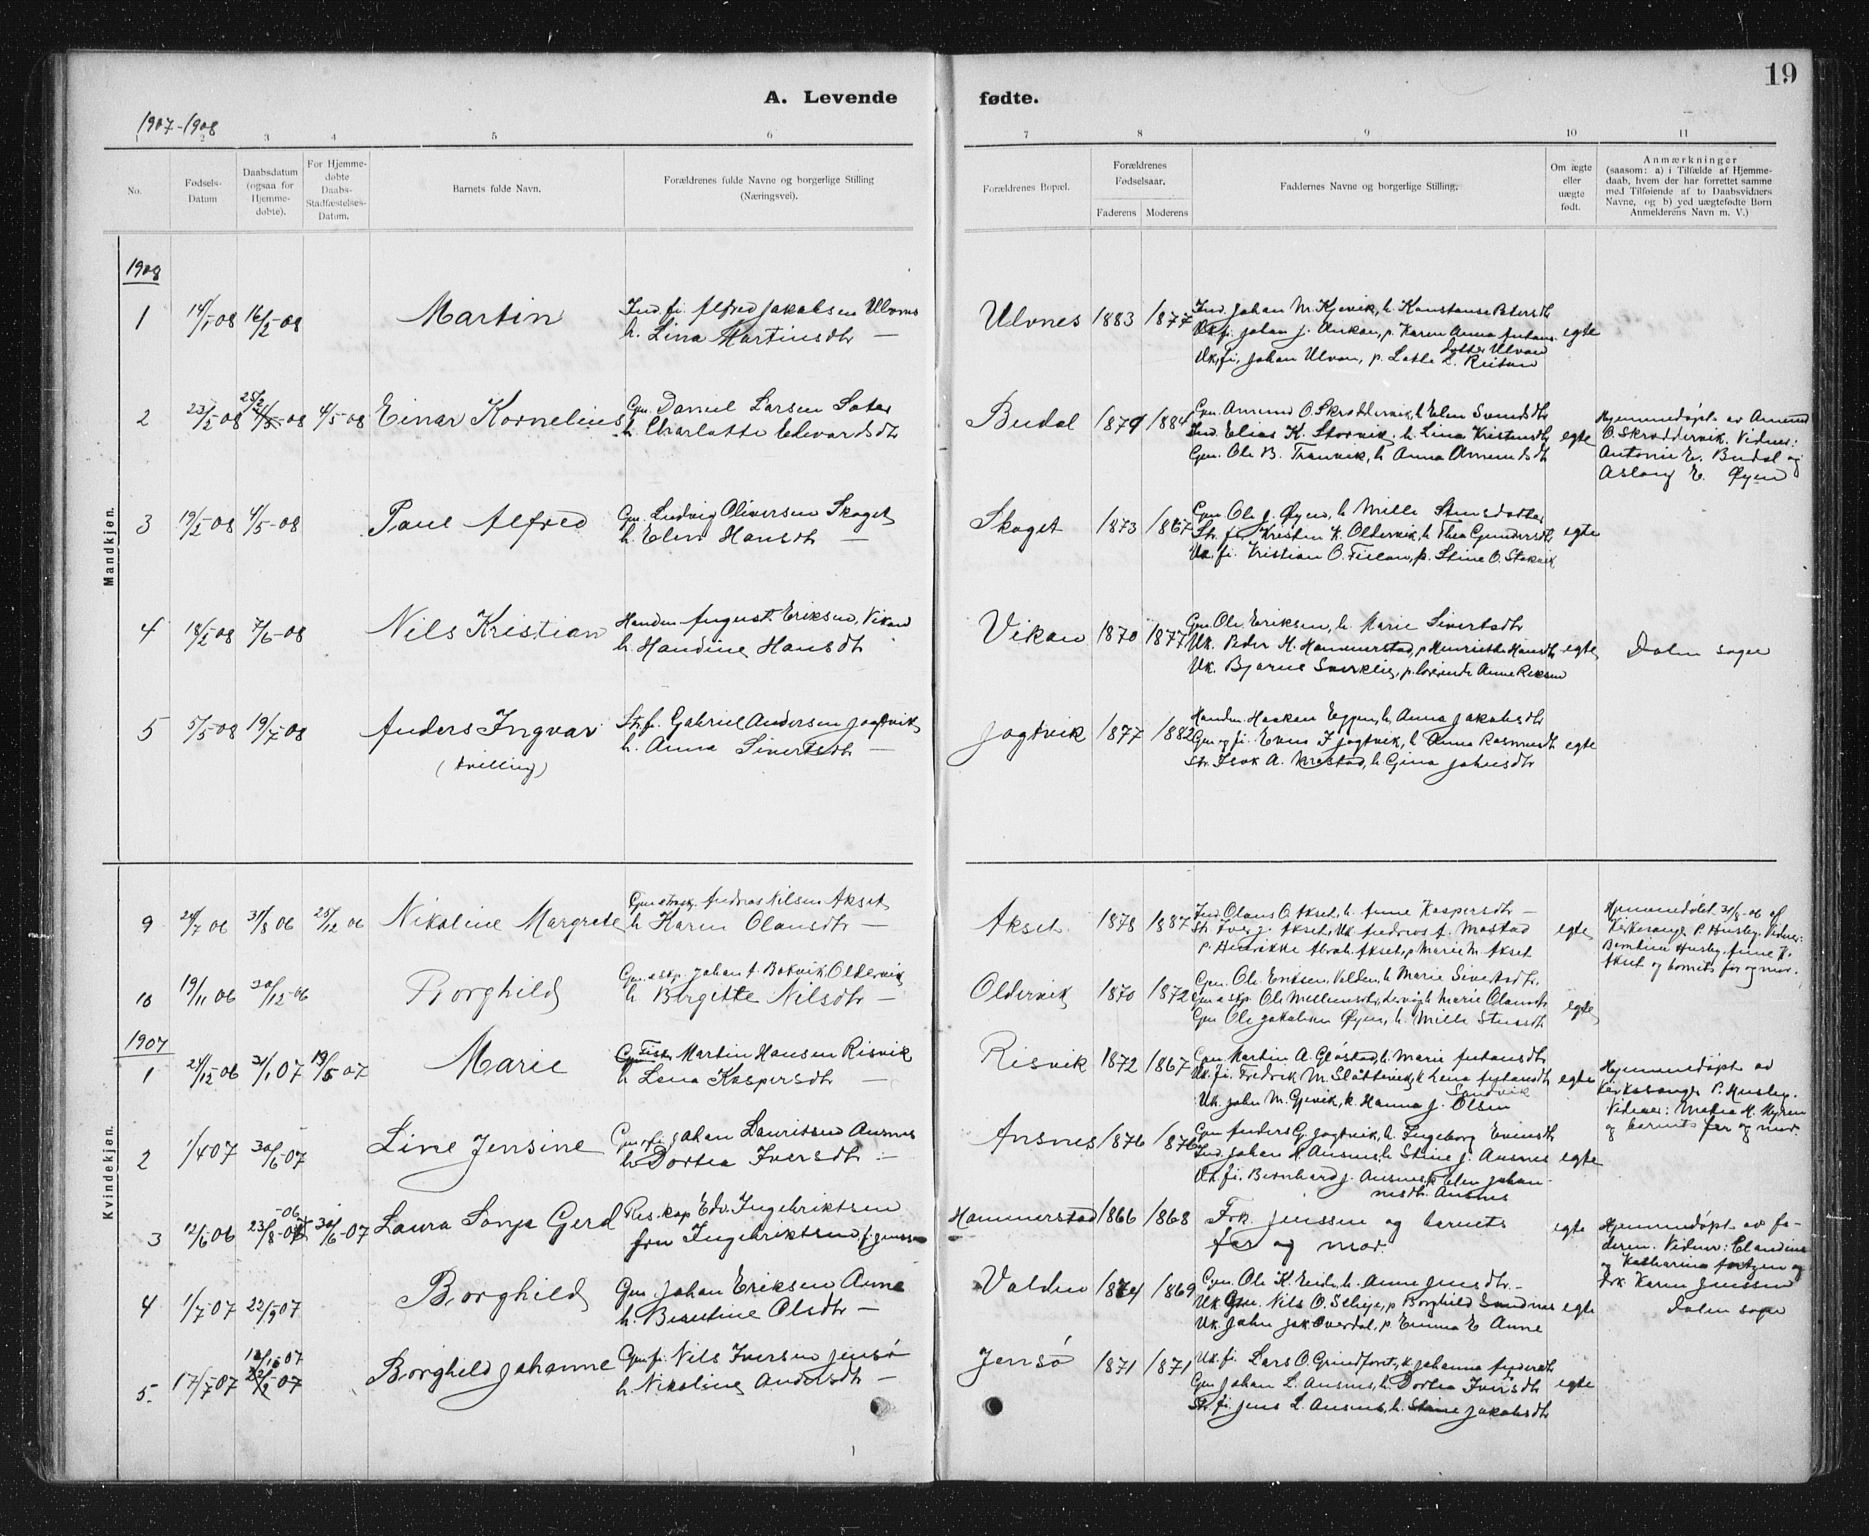 19
A. Levende fødte.
1907-1908
1 2 3 4 5 6 7 8 9 10 11
No.
Fødsels-
Datum
Daabsdatum
(ogsaa for
Hjemme-
døbte).
For Hjemme-
døbte
Daabs-
Stadfæstelses-
Datum.
Barnets fulde Navn.
Forældrenes fulde Navne og borgerlige Stilling
(Næringsvei).
Forældrenes Bopæl.
Forældrenes
Fødselsaar.
Faderens Moderens
Faddernes Navne og borgerlige Stilling.
Om ægte
eller
uægte
født.
Anmærkninger
(saasom: a) i Tilfælde af Hjemme-
daab, hvem der har forrettet samme
med Tilføiende af to Daabsvidners
Navne, og b) ved uægtefødte Børn
Anmelderens Navn m. V.)
Mandkjøn.
1908
1 14/1-08 16/2-08 Martin
Ind. fi. Alfred Jakobsen Ulvnes
h. Lina Martinsdtr —
Ulvnes 1883 1877
Ind. Johan M. Kjevik, h. Konstanse Petersdtr
Uk. fi. Johan J. Aukan, p. Karen Anna Antons-
datter Ulvan
Uk. fi. Johan Ulvan, p. Lotte L. Reitan
egte
2 23/2 08 25/2 4/5-08 4/5-08 Einar Kornelius
Gm. Daniel Larsen
h. Charlotte Edvardsdtr
Budal 1879 1884
Gm. Amund O. Skrøddervik, h. Elen Svendsdtr
Ind. Elias K. Storvik, h. Lina Kristensdtr
Gm. Ole B. Tranvik, h. Anna Amundsdtr
egte
Hjemmedøpt av Amund
O. Skrøddervik. Vidner:
Antonie E. Budal og
Aslaug E. Øyen
3 19/2-08 4/5-08 Paul Alfred
Gm. Ludvig Oliversen Skaget
h. Elen Hansdtr —
Skaget 1873 1867
Gm. Ole J. Øyen, h. Mille Stensdatter
Str. fi. Kristen K. Oldervik, h. Thea Gundersdtr
Uk. fi. Kristian O. Teilan, p. Stine O. Stokvik
egte
4 18/2 08 7/6-08 Nils Kristian
Handm. August Eriksen, Vikan
h. Handine Hansdtr
Vikan 1870 1877
Gm. Ole Eriksen, h. Marie Sivertsdtr
Uk. Peder H. Hammerstad, p. Henriette Hansdtr
Uk. Bjarne Sverklie, p. Anne Reksen
egte
Dolm sogn
5 5/5-08 19/7-08 Anders Ingvar
(tvilling)
Str. f. Gabriel Andersen Jøgtvik
h. Anna Sivertsdtr —
Jøgtvik 1877 1882
Handm. Haakan Eggen, h. Anna Jakobsdtr
Gm. og fi. Even I. Jøgtvik, h. Anna Rasmusdtr
Str. Isak A. Mostad, h. Gina Johnsdtr
egte
Kvindekjøn.
9 24/7 06 31/8 06 25/12 06 Nikoline Margrete
Andreas Nilsen Akset
h. Karen Olausdtr —
Akset 1878 1887
Ind. Olaus O. Akset, h. Anne Kaspersdtr —
Str. Iver J. Akset, Uk. Andreas A. Mostad
p. Henrikke Abrah. Akset, p. Marie M. Akset
egte
Hjemmedøbt 31/8-06 af
Kirkesanger P. Husby. Vidner:
Berntine Husby, Anne K.
Akset og barnets far og mor.
10 19/11 06 30/12-06 Borghild
Gm. & skp. Johan A. Bakvik Oldervik
h. Bergitte Nilsdtr —
Oldervik 1870 1872
Gm. Ole Eriksen Valden, h. Marie Sivertsdtr.
Gm & skp. Ole Marie Olausdtr
Gm Ole Jakobsen Øyen, h. Mille Stensdtr
egte
1907
1 24/12-06 31/1 07 19/5 07 Marie
Fisk. Martin Hansen Risvik
h. Lena Kaspersdtr —
Risvik 1872 1867
Gm. Martin A. Gløstad, h. Marie Antonsdtr
Uk. fi. Fredrik M. Slåttevik, h. Lena
Sandvik
Uk. John M. Gjevik, h. Hanna J. Olsen
egte
Hjemmedøpt av
Kirkesanger P. Husby.
Vidner: Matea H. Hyven
og barnets far og mor.
2 1/4 07 30/6-07 Line Jensine
Gm. og fi. Johan Lauritsen Ansnes
h. Dortea Iversdtr —
Ansnes 1876 1876
Gm. Anders G. Jøgtvik, h. Ingeborg Evensdtr
Ind. Johan H. Ansnes, h. Stine J. Ansnes
Uk. fi. Bernhard J. Ansnes, p. Elen Johan-
nesdtr. Ansnes
egte
3 12/6 06 23/8-06 30/6-07 Laura Sonja Gerd
Res. kap Edv. Ingebriktsen
fru Ingebriktsen f. Jenssen
Hammerstad 1866 1868
Frk. Jenssen og barnets
far og mor.
egte
Hjemmedøpt av fa-
deren. Vidner: Claudine
og Katharina og
frk. Karen Jenssen
4 1/7-07 22/9 07 Borghild
Gm. Johan Eriksen Anne
h. Berntine Olsdtr —
Valden 1874 1869
Gm. Ole K. Eide, h. Anne Jensdtr. —
Uk. Gm. Nils O. Selvje, p. Borghild Sandnes
Uk. John Jak Overdal, p. Emma E Anne
egte
Dolm sogn
5. 17/7-07 -07 22/2-07 Borghild Johanne
Gm. fi. Nils Iversen Jensø
h. Nikoline Andersdtr —
Jensø 1871 1871
Uk. fi. Lars O. Grindforet, k. Johanna Andersdtr
Gm Johan L. Ansnes, h. Dortea Iversdtr
Str. fi. Jens L. Ansnes, h. Stine Jakobsdtr
egte